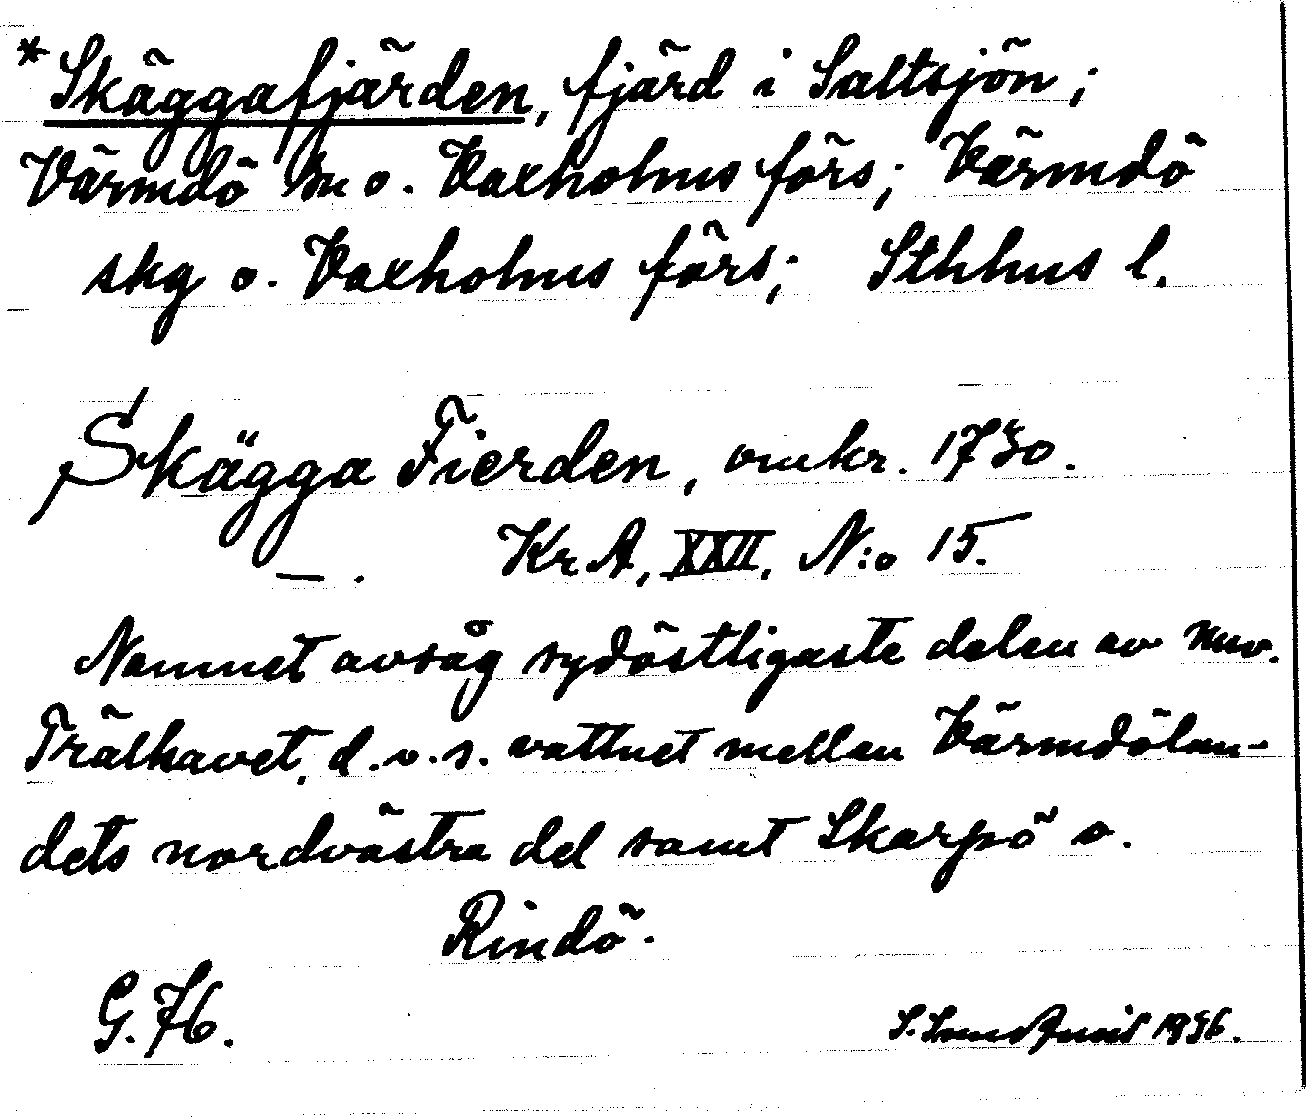 *Skäggafjärden, fjärd i Saltsjön;
Värmdö m o. Vaxholms förs; Värmdö
skg o. Vaxholms förs; Sthlms l.
Skägga Fierden, omkr. 1730.
— . KrA, XXII, N:o 15.
Namnet avsåg sydöstligaste delen av nuv.
Trälhavet, d.v.s. vattnet mellan Värmdölan-
dets nordvästra del samt Skarpö o.
Rindö.
G. 76.
S. 1936.